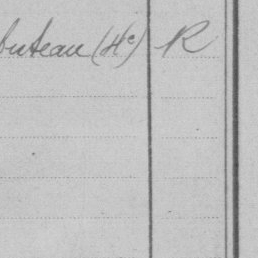 buteau (Hᵉ) R